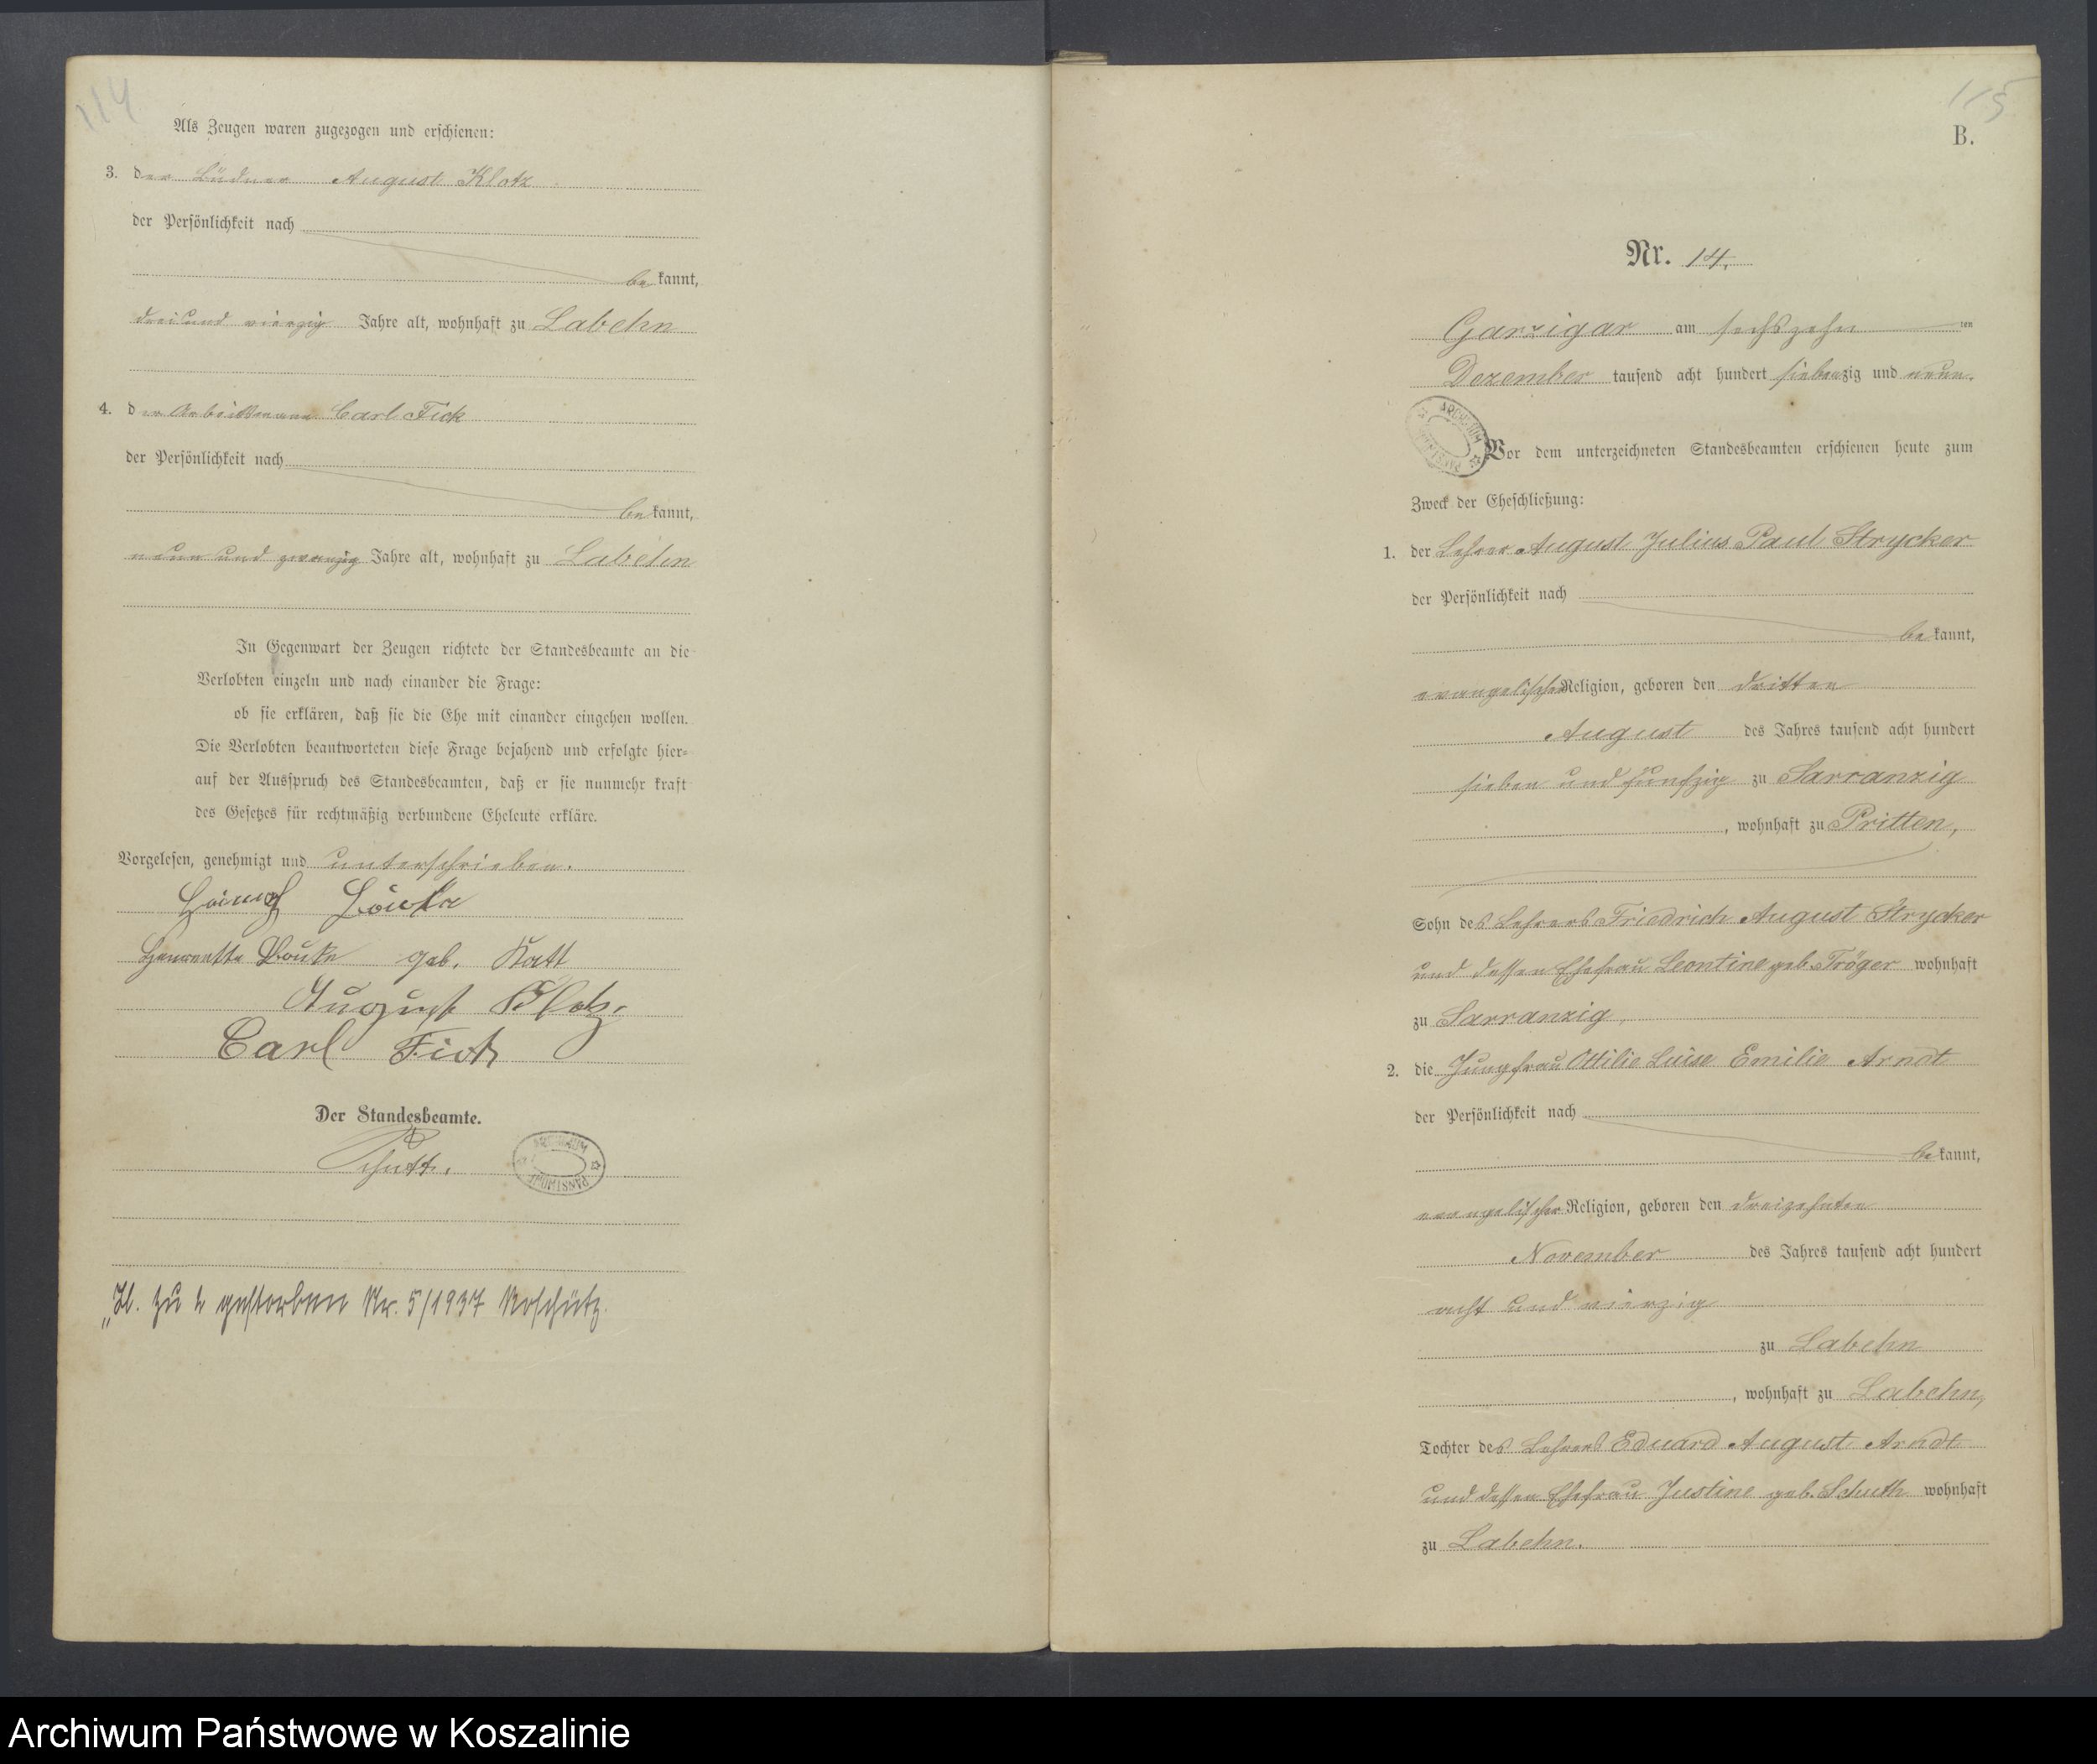 114
Als Zeugen waren zugezogen und erschienen:
3. der Büdner August Klotz
der Persönlichkeit nach
bekannt,
drei und vierzig Jahre alt, wohnhaft zu Labehn
4. der Arbeitsmann Carl Fick
der Persönlichkeit nach
bekannt,
neun und zwanzig Jahre alt, wohnhaft zu Labehn
In Gegenwart der Zeugen richtete der Standesbeamte an die
Verlobten einzeln und nach einander die Frage:
ob sie erklären, daß sie die Ehe mit einander eingehen wollen.
Die Verlobten beantworteten diese Frage bejahend und erfolgte hier=
auf der Ausspruch des Standesbeamten, daß er sie nunmehr kraft
des Gesetzes für rechtmäßig verbundene Eheleute erkläre.
Vorgelesen, genehmigt und unterschrieben.
Heinrich
geb. Katt
August Klotz.
Carl Fick
Der Standesbeamte.
ARCHIWUM PAŃSTWOWE
zu 2 gestorben Nr. 5/1937 Roschütz.
115
B.
Nr. 14.
Garzigar am sechszehnten
Dezember tausend acht hundert siebenzig und neun.
ARCHIWUM PAŃSTWOWE
Vor dem unterzeichneten Standesbeamten erschienen heute zum
Zweck der Eheschließung:
1. der Lehrer August Julius Paul Strycker
der Persönlichkeit nach
bekannt,
evangelischer Religion, geboren den dritten
August des Jahres tausend acht hundert
sieben und funfzig zu Sarranzig
, wohnhaft zu Pritten,
Sohn des Lehrers Friedrich August Strycker
und dessen Ehefrau Leontine geb. Tröger wohnhaft
zu Sarranzig,
2. die Jungfrau Ottilie Luise Emilie Arndt
der Persönlichkeit nach
bekannt,
evangelischer Religion, geboren den dreizehnten
November des Jahres tausend acht hundert
acht und vierzig
zu Labehn
, wohnhaft zu Labehn,
Tochter des Lehrers Eduard August Arndt
und dessen Ehefrau Justine geb. Schuth wohnhaft
zu Labehn.
Archiwum Państwowe w Koszalinie